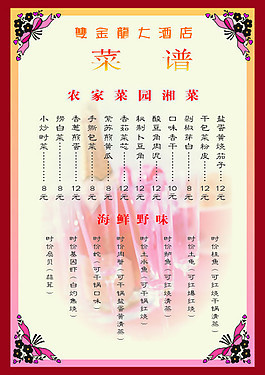 雙金龍大酒店
菜谱
农家菜园湘菜
盐蛋黄烧茄子 12元
干包菜粉皮 12元
剁椒芽白 8元
口味香干 10元
酸豆角肉泥 12元
秘制卜豆角 12元
香菇菜芯 12元
紫苏煎黄瓜 8元
手撕包菜 8元
香葱煎蛋 12元
捞白菜 8元
小炒时菜 8元
海鲜野味
时价桂鱼（可红烧干锅清蒸）
时价土龟（可红爆红烧）
时价鲈鱼（可红烧清蒸）
时价土水鱼（可干锅红烧）
时价肉蟹（可干锅盐蛋黄清蒸）
时价蛇（可干锅口味）
时价基因虾（白灼焦烧）
时价扇贝（蒜茸）